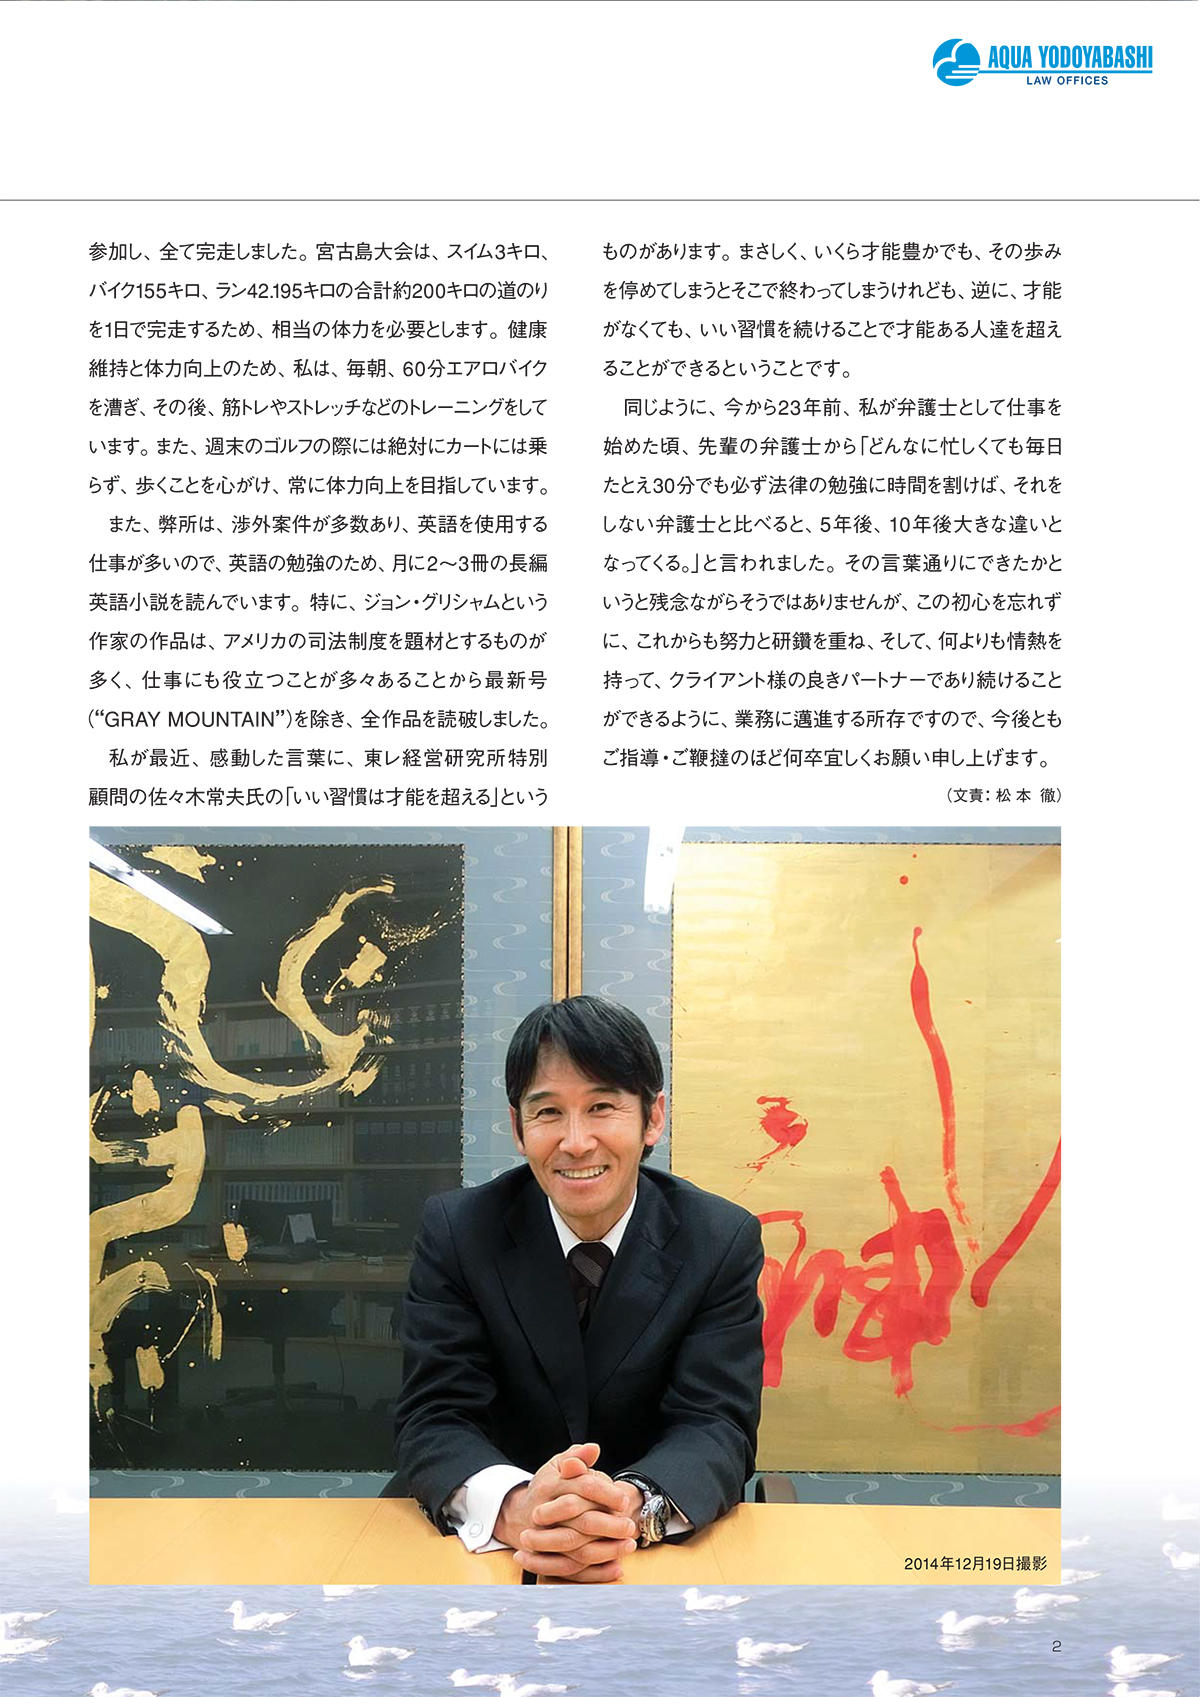 AQUA YODOYABASHI
LAW OFFICES
参加し、全て完走しました。宮古島大会は、スイム3キロ、
バイク155キロ、ラン42.195キロの合計約200キロの道のり
を1日で完走するため、相当の体力を必要とします。健康
維持と体力向上のため、私は、毎朝、60分エアロバイク
を漕ぎ、その後、筋トレやストレッチなどのトレーニングをして
います。また、週末のゴルフの際には絶対にカートには乗
らず、歩くことを心がけ、常に体力向上を目指しています。
また、弊所は、渉外案件が多数あり、英語を使用する
仕事が多いので、英語の勉強のため、月に2〜3冊の長編
英語小説を読んでいます。特に、ジョン・グリシャムという
作家の作品は、アメリカの司法制度を題材とするものが
多く、仕事にも役立つことが多々あることから最新号
(“GRAY MOUNTAIN”)を除き、全作品を読破しました。
私が最近、感動した言葉に、東レ経営研究所特別
顧問の佐々木常夫氏の「いい習慣は才能を超える」という
ものがあります。まさしく、いくら才能豊かでも、その歩み
を停めてしまうとそこで終わってしまうけれども、逆に、才能
がなくても、いい習慣を続けることで才能ある人達を超え
ることができるということです。
同じように、今から23年前、私が弁護士として仕事を
始めた頃、先輩の弁護士から「どんなに忙しくても毎日
たとえ30分でも必ず法律の勉強に時間を割けば、それを
しない弁護士と比べると、5年後、10年後大きな違いと
なってくる。」と言われました。その言葉通りにできたかと
いうと残念ながらそうではありませんが、この初心を忘れず
に、これからも努力と研鑽を重ね、そして、何よりも情熱を
持って、クライアント様の良きパートナーであり続けること
ができるように、業務に邁進する所存ですので、今後とも
ご指導・ご鞭撻のほど何卒宜しくお願い申し上げます。
（文責：松本 徹）
2014年12月19日撮影
2